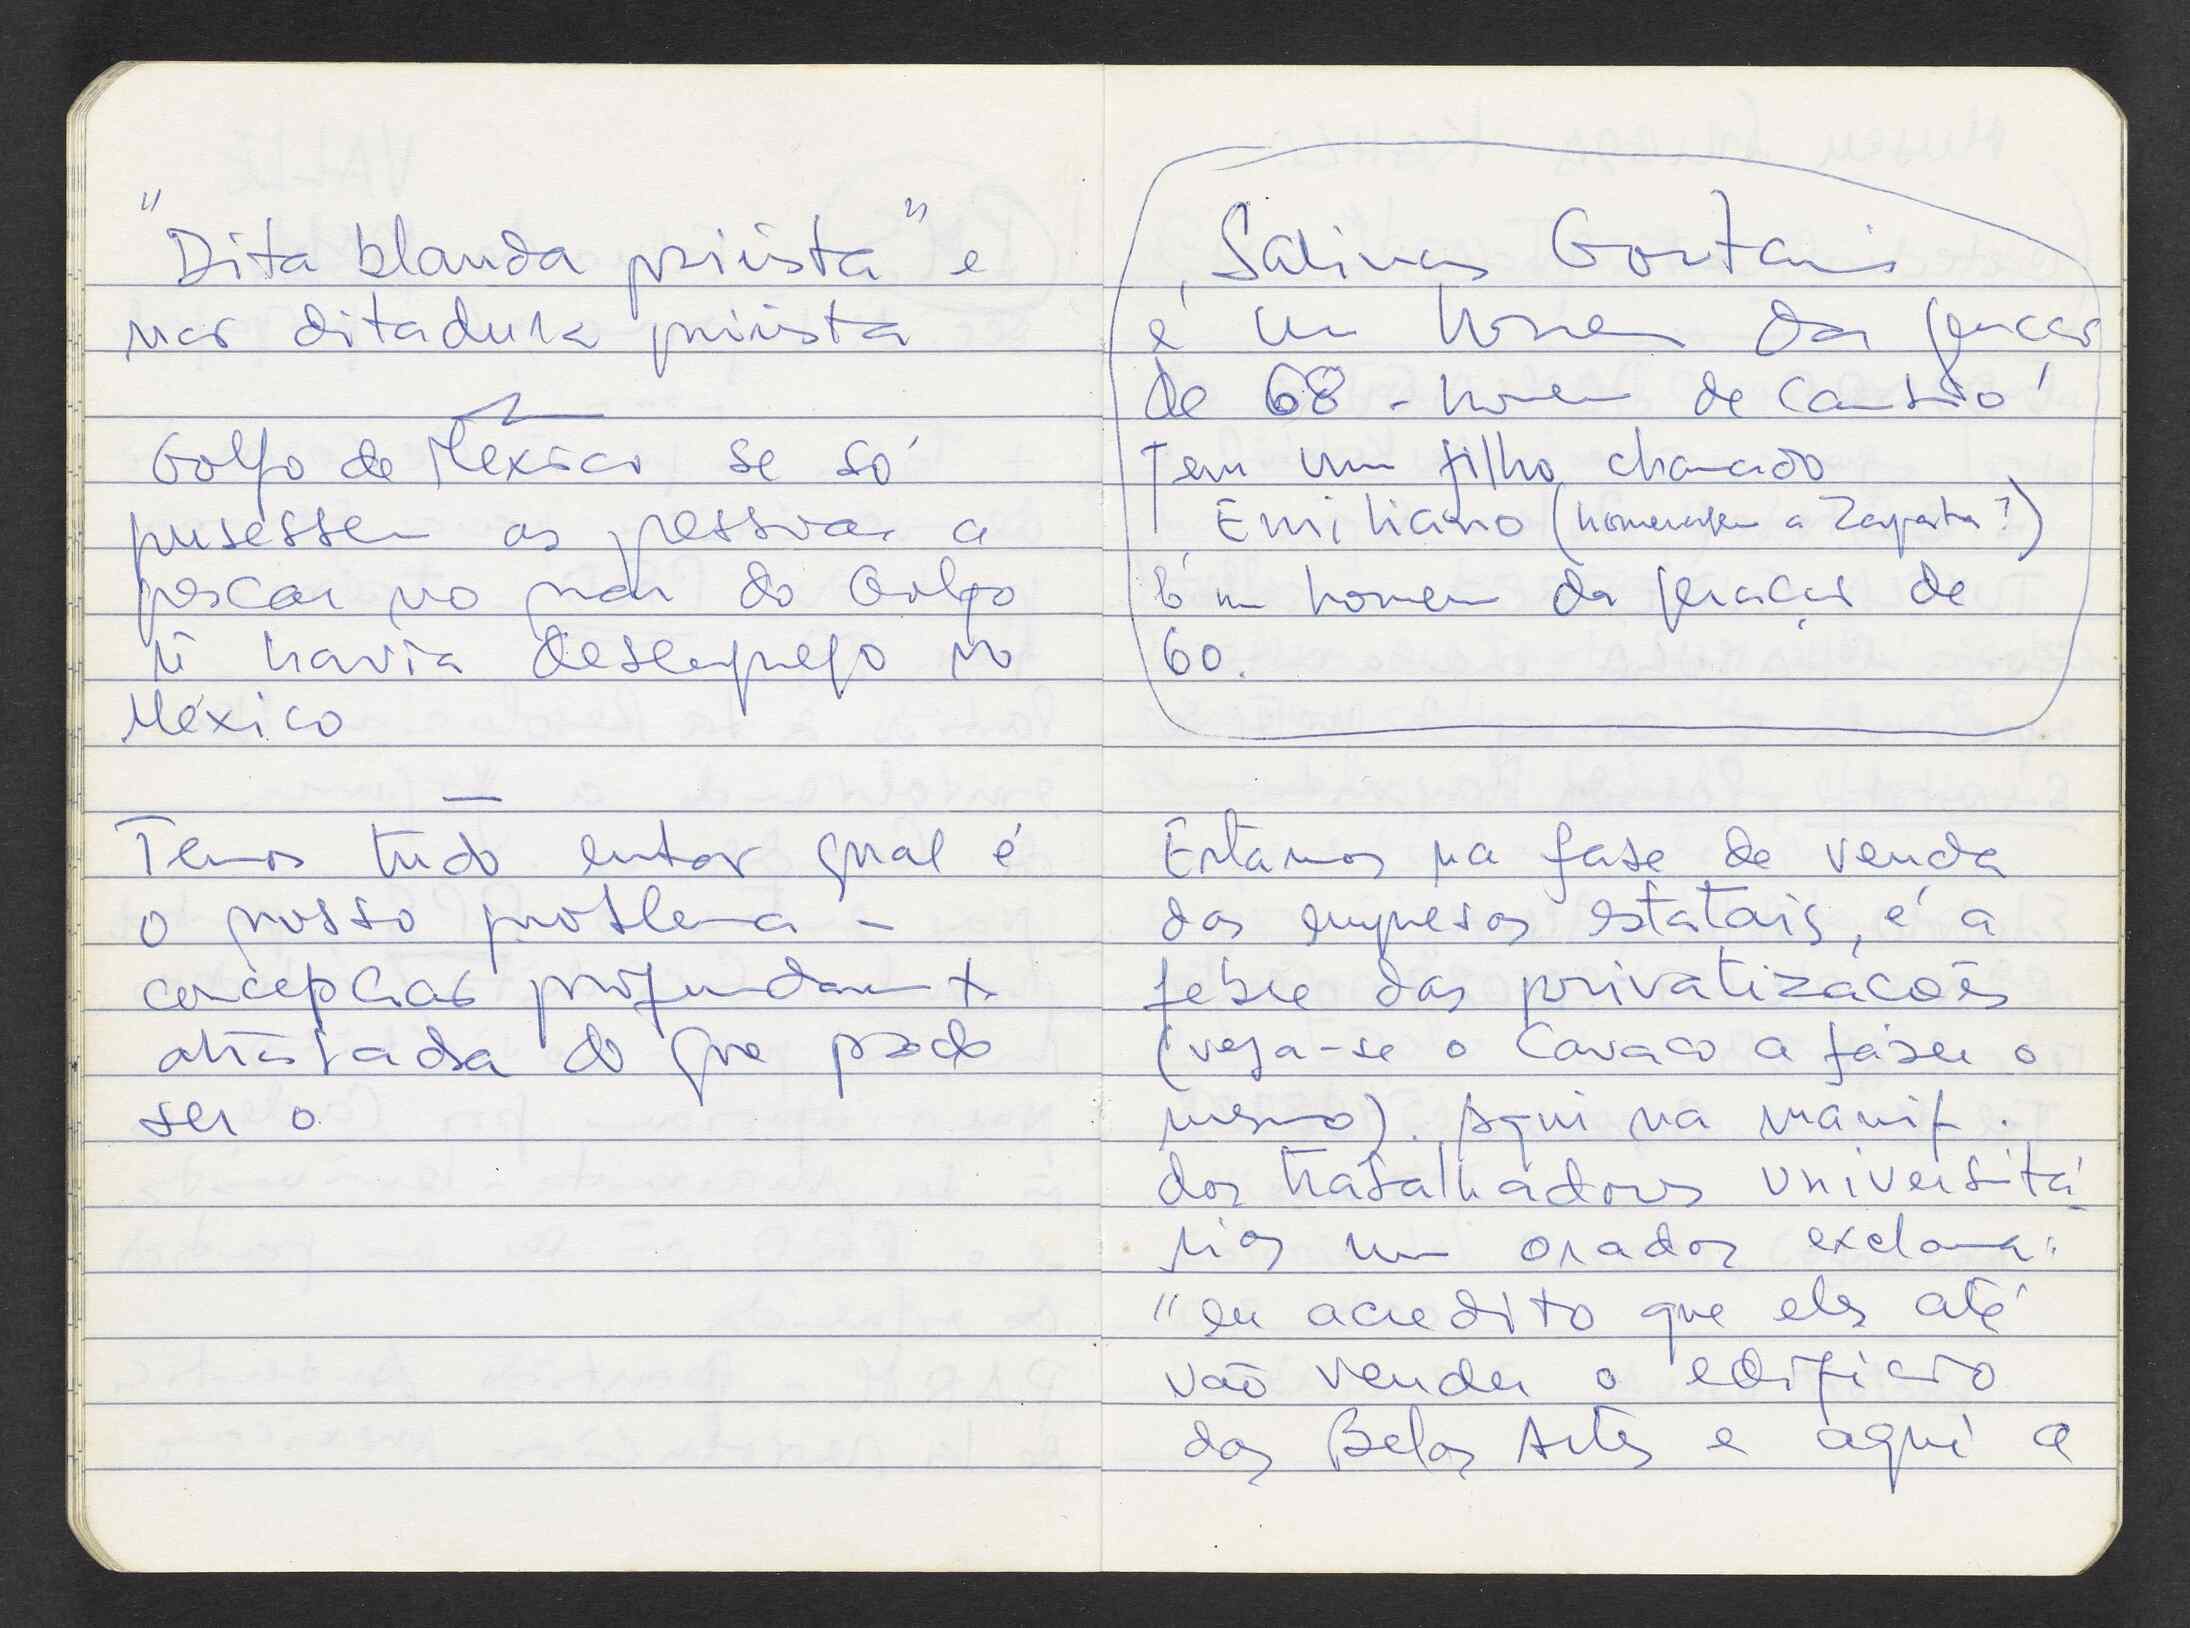 "Dita blanda priista" e
nao ditadura priista
Golfo de México se só
pusessem as pessoas a
pescar no mar do Golfo
ñ havia desemprego no
México
Temos tudo entao qual é
o nosso problema -
concepçao profundam
do que
ser o
Salinas Gortari
é um homem da geraçao
de 68 - homem de
Tem um filho chamado
Emiliano (homenagem a Zapata?)
É um homem da geraçao de
60.
Estamos na fase de venda
das empresas estatais, é a
febre das privatizacões
(veja-se o Cavaco a fazer o
mesmo). Aqui na manif.
dos trabalhadores universitá-
rios um orador exclama:
"eu acredito que eles até
vão vender o edificio
das Belas Artes e aqui a